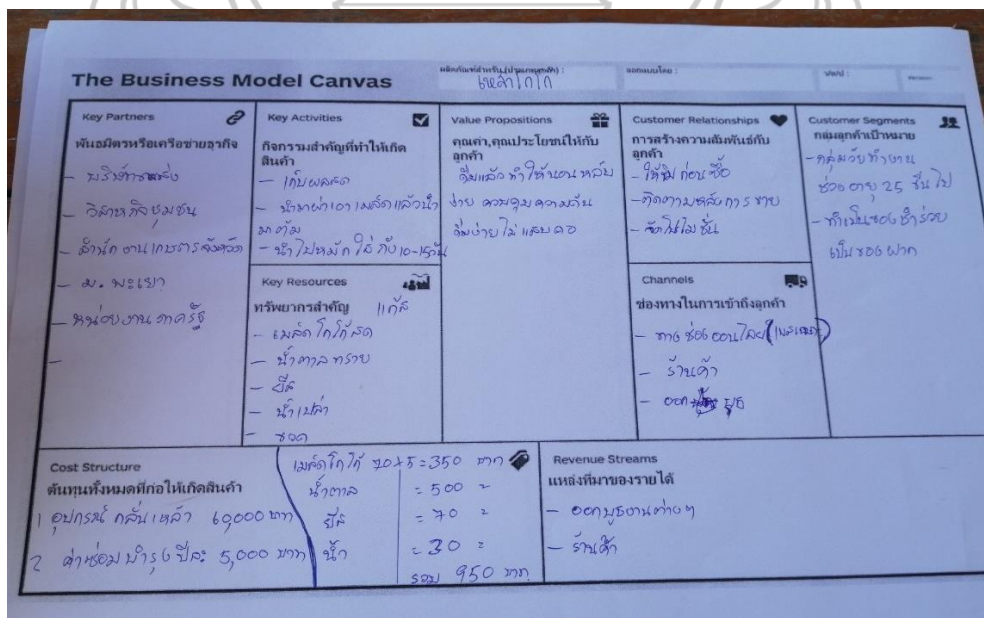 The Business Model Canvas
ผลิตภัณฑ์สำหรับ (ประเภทธุรกิจ) :
เหล้าโกโก้
ออกแบบโดย :
Version:
Key Partners
พันธมิตรหรือเครือข่ายธุรกิจ
- บริษัทขนส่ง
- วิสาหกิจชุมชน
- สำนักงานเกษตรจังหวัด
- ม. พะเยา
- หน่วยงานภาครัฐ
-
Key Activities
กิจกรรมสำคัญที่ทำให้เกิด
สินค้า
- เก็บผลสด
- นำมาผ่าเอาเมล็ดแล้วนำ
มาต้ม
- นำไปหมักใส่ถัง 10-15วัน
Key Resources
ทรัพยากรสำคัญ แก๊ส
- เมล็ดโกโก้สด
- น้ำตาลทราย
- ยีส
- น้ำเปล่า
- ขวด
Value Propositions
คุณค่า,คุณประโยชน์ให้กับ
ลูกค้า
ดื่มแล้วทำให้นอนหลับ
ง่าย ควบคุมความดัน
ดื่มง่ายไม่แสบคอ
Customer Relationships
การสร้างความสัมพันธ์กับ
ลูกค้า
- ให้ชิมก่อนซื้อ
- ติดตามหลังการขาย
- จัดโปรโมชั่น
Channels
ช่องทางในการเข้าถึงลูกค้า
- ทางช่องออนไลย์
- ร้านค้า
- ออก บูธ
Customer Segments
กลุ่มลูกค้าเป้าหมาย
- กลุ่มวัยทำงาน
ช่วงอายุ 25 ขึ้นไป
- ทำเป็นของชำร่วย
เป็นของฝาก
Cost Structure
ต้นทุนทั้งหมดที่ก่อให้เกิดสินค้า
1 อุปกรณ์ กลั่นเหล้า 60,000 บาท
2 ค่าซ่อมบำรุงปีละ 5,000 บาท
เมล็ดโกโก้ 70x5=350 บาท
น้ำตาล = 500 "
ยีส = 70 "
น้ำ = 30 "
รวม 950 บาท
Revenue Streams
แหล่งที่มาของรายได้
- ออกบูธงานต่างๆ
- ร้านค้า